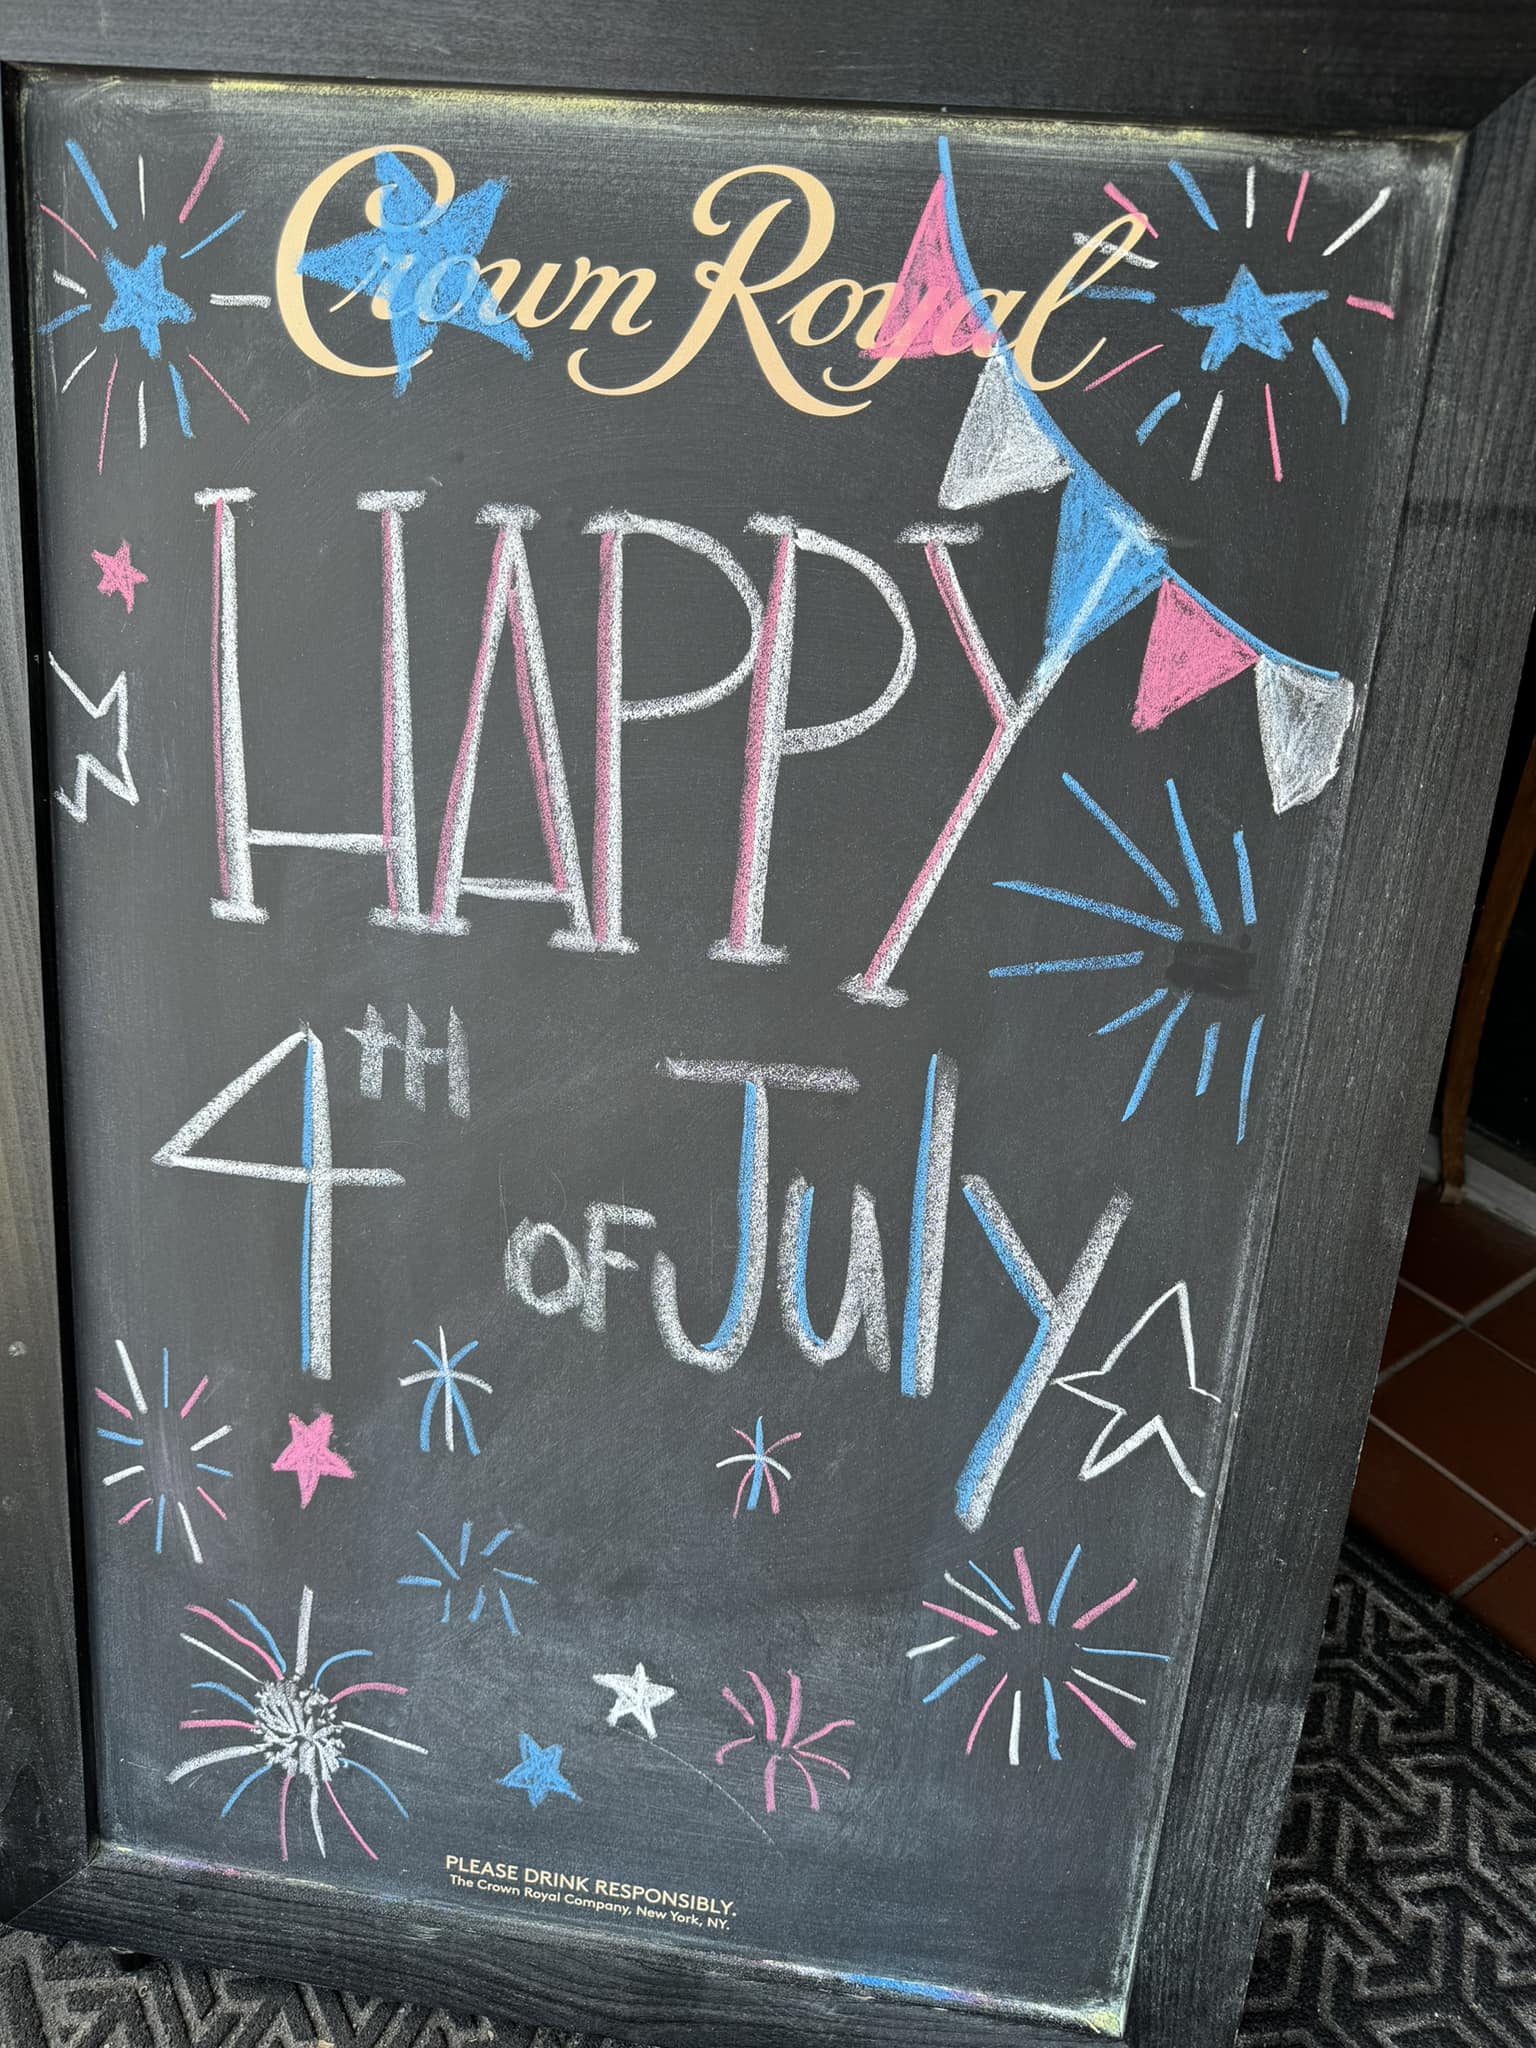 Crown Royal
HAPPY
4TH
OF July
PLEASE DRINK RESPONSIBLY.
The Crown Royal Company, New York, NY.